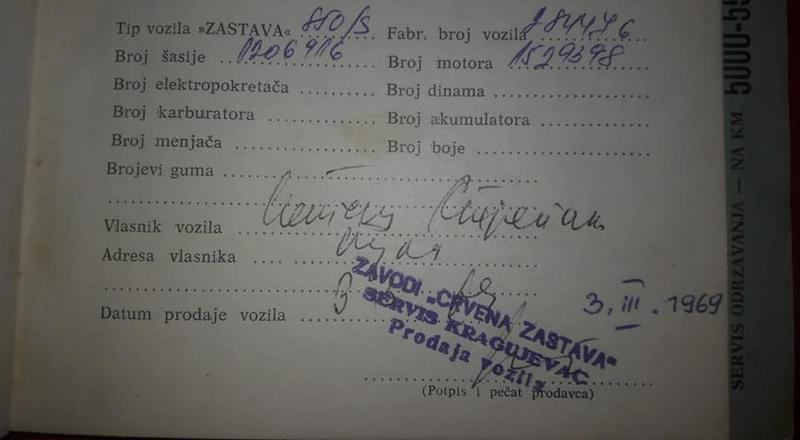 Tip vozila »ZASTAVA« 850/S Fabr. broj vozila 284476
Broj šasije 1206916 Broj motora 1529398
Broj elektropokretača Broj dinama
Broj karburatora Broj akumulatora
Broj menjača Broj boje
Brojevi guma
Vlasnik vozila
Adresa vlasnika
Datum prodaje vozila
3. III. 1969
ZAVODI „CRVENA ZASTAVA“
SERVIS KRAGUJEVAC
Prodaja vozila
(Potpis i pečat prodavca)
SERVIS ODRŽAVANJA — NA KM